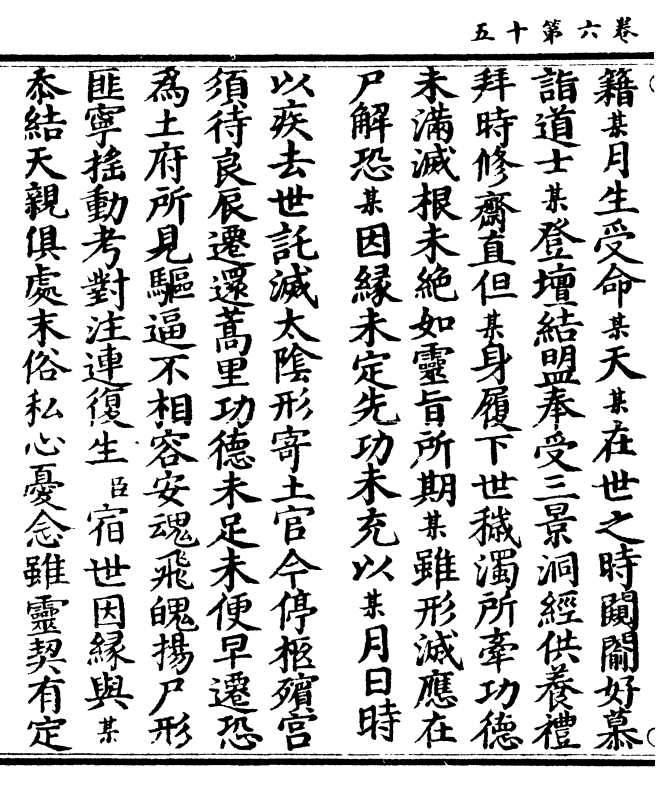 卷六第十五
籍某月生受命某天某在世之時闚闟好慕
詣道士某登壇結盟奉受三景洞經供養禮
拜時修齋直但某身履下世穢濁所牽功德
未滿滅根未絶如靈旨所期某雖形滅應在
尸解恐某因緣未定先功未充以某月日時
以疾去世託滅太陰形寄土官今停柩殯宫
須待良辰遷還蒿里功德未足未便早遷恐
爲土府所見驅逼不相容安魂飛魄揚尸形
匪寧搖動考對注連復生臣宿世因緣與某
忝結天親俱處末俗私心憂念雖靈契有定